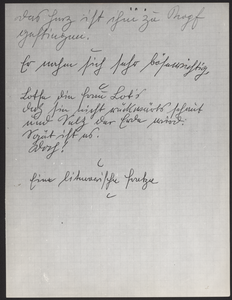 das Herz ist ihm zu Kopf
gestiegen.
Er nahm sich sehr bösewichtig,
Lotse die Frau Lot's
daß sie nicht rückwärts schaut
und Salz der Erde wird.
Spät ist es.
Doch!
Eine literarische Fratze